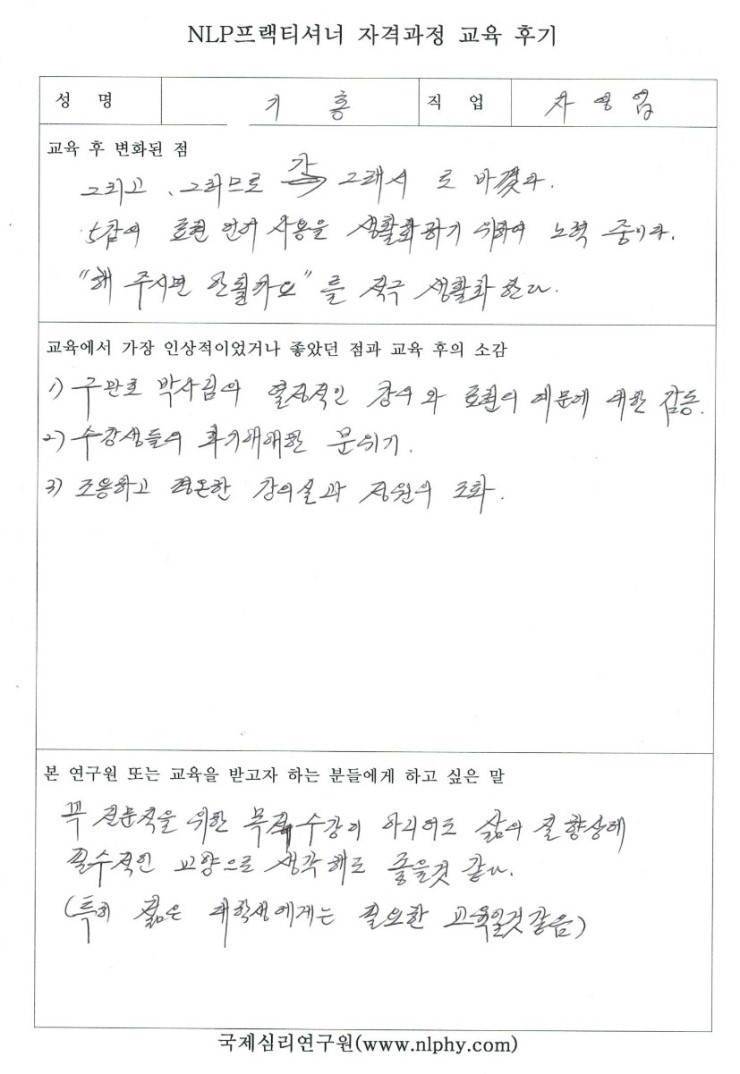 NLP프랙티셔너 자격과정 교육 후기
성 명 기 홍 직 업 자영업
교육 후 변화된 점
그리고, 그러므로 그래서 로 바꿨다.
언어 사용을 생활화하기 위하여 노력 중이다.
"해 주시면 안될까요"를 적극 생활화 한다.
교육에서 가장 인상적이었거나 좋았던 점과 교육 후의 소감
1) 박사님의 열정적인 강의와 예문에 대한 감동.
2) 수강생들의 화기애애한 분위기.
3) 조용하고 평온한 강의실과 정원의 조화.
본 연구원 또는 교육을 받고자 하는 분들에게 하고 싶은 말
꼭 위한 수강이 아니어도 삶의 질 향상에
필수적인 교양으로 생각해도 좋을것 같다.
(특히 젊은 대학생에게는 필요한 교육일것 같음)
국제심리연구원(www.nlphy.com)